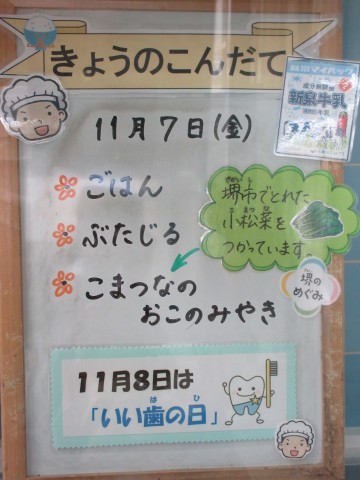 きょうのこんだて
成分無調整
新泉牛乳
11月7日(金)
ごはん
ぶたじる
こまつなの
おこのみやき
堺市でとれた
小松菜を
つかっています。
堺の
めぐみ
11月8日は
「いい歯の日」